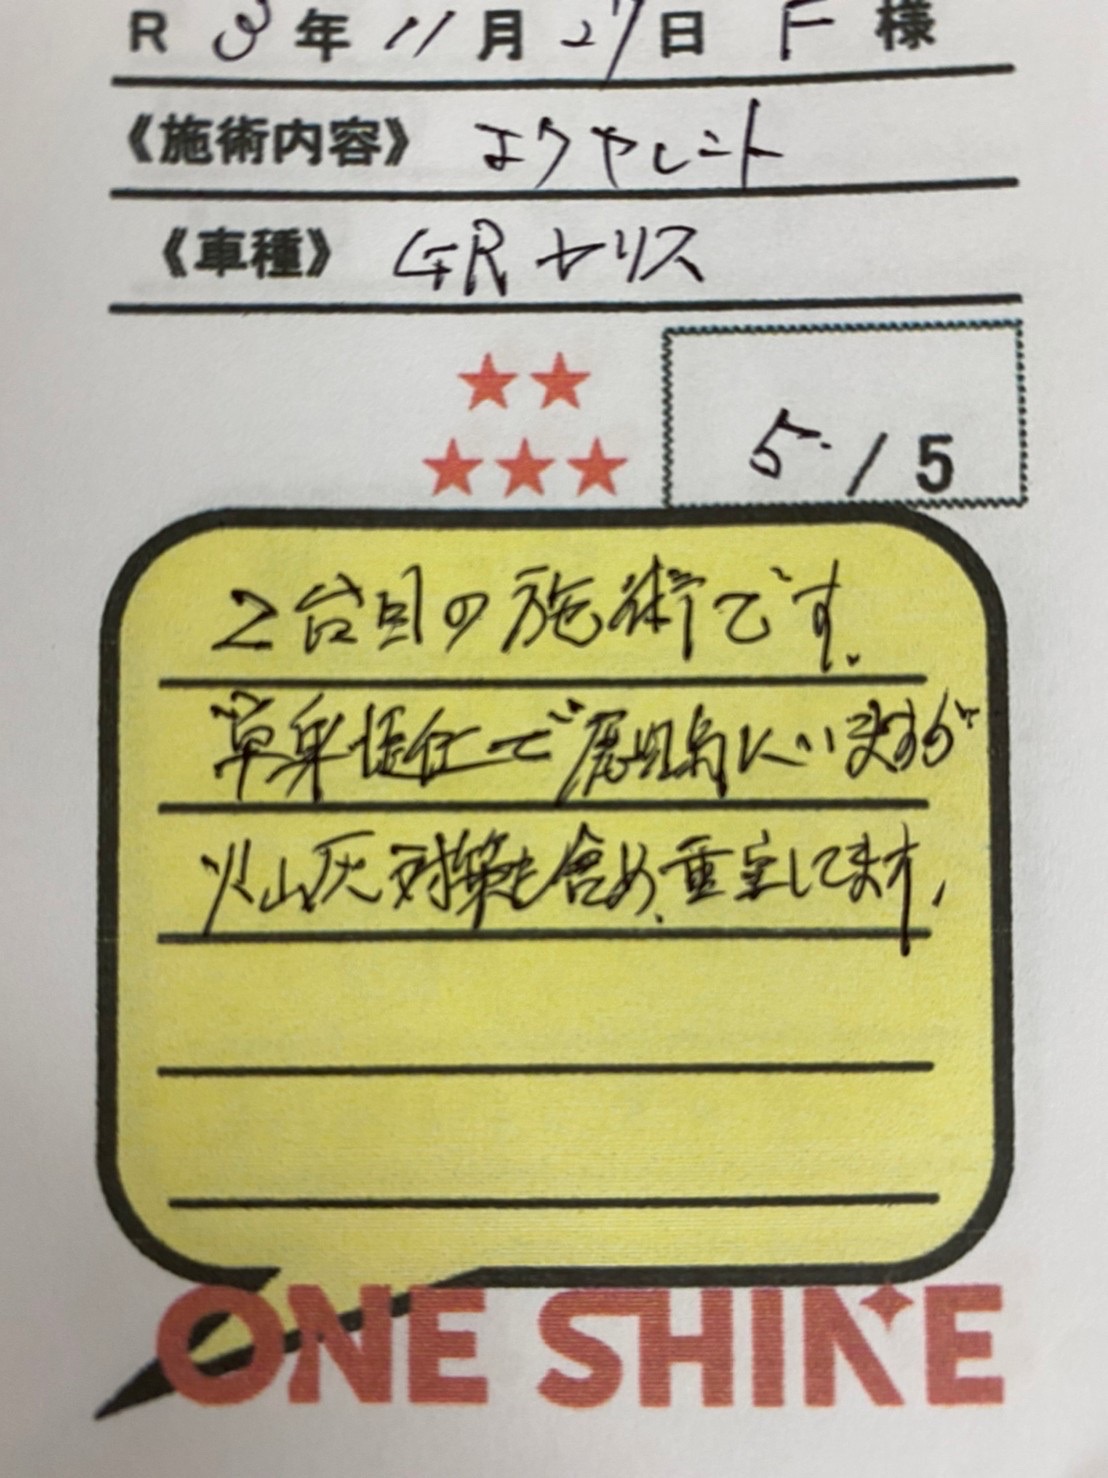 R 3年 11月 27日 F 様
《施術内容》 エクヤレント
《車種》 GRヤリス
5/5
2台目の施術です.
単身赴任で鹿児島にいますが
火山灰対策も含め、重宝してます.
ONE SHINE